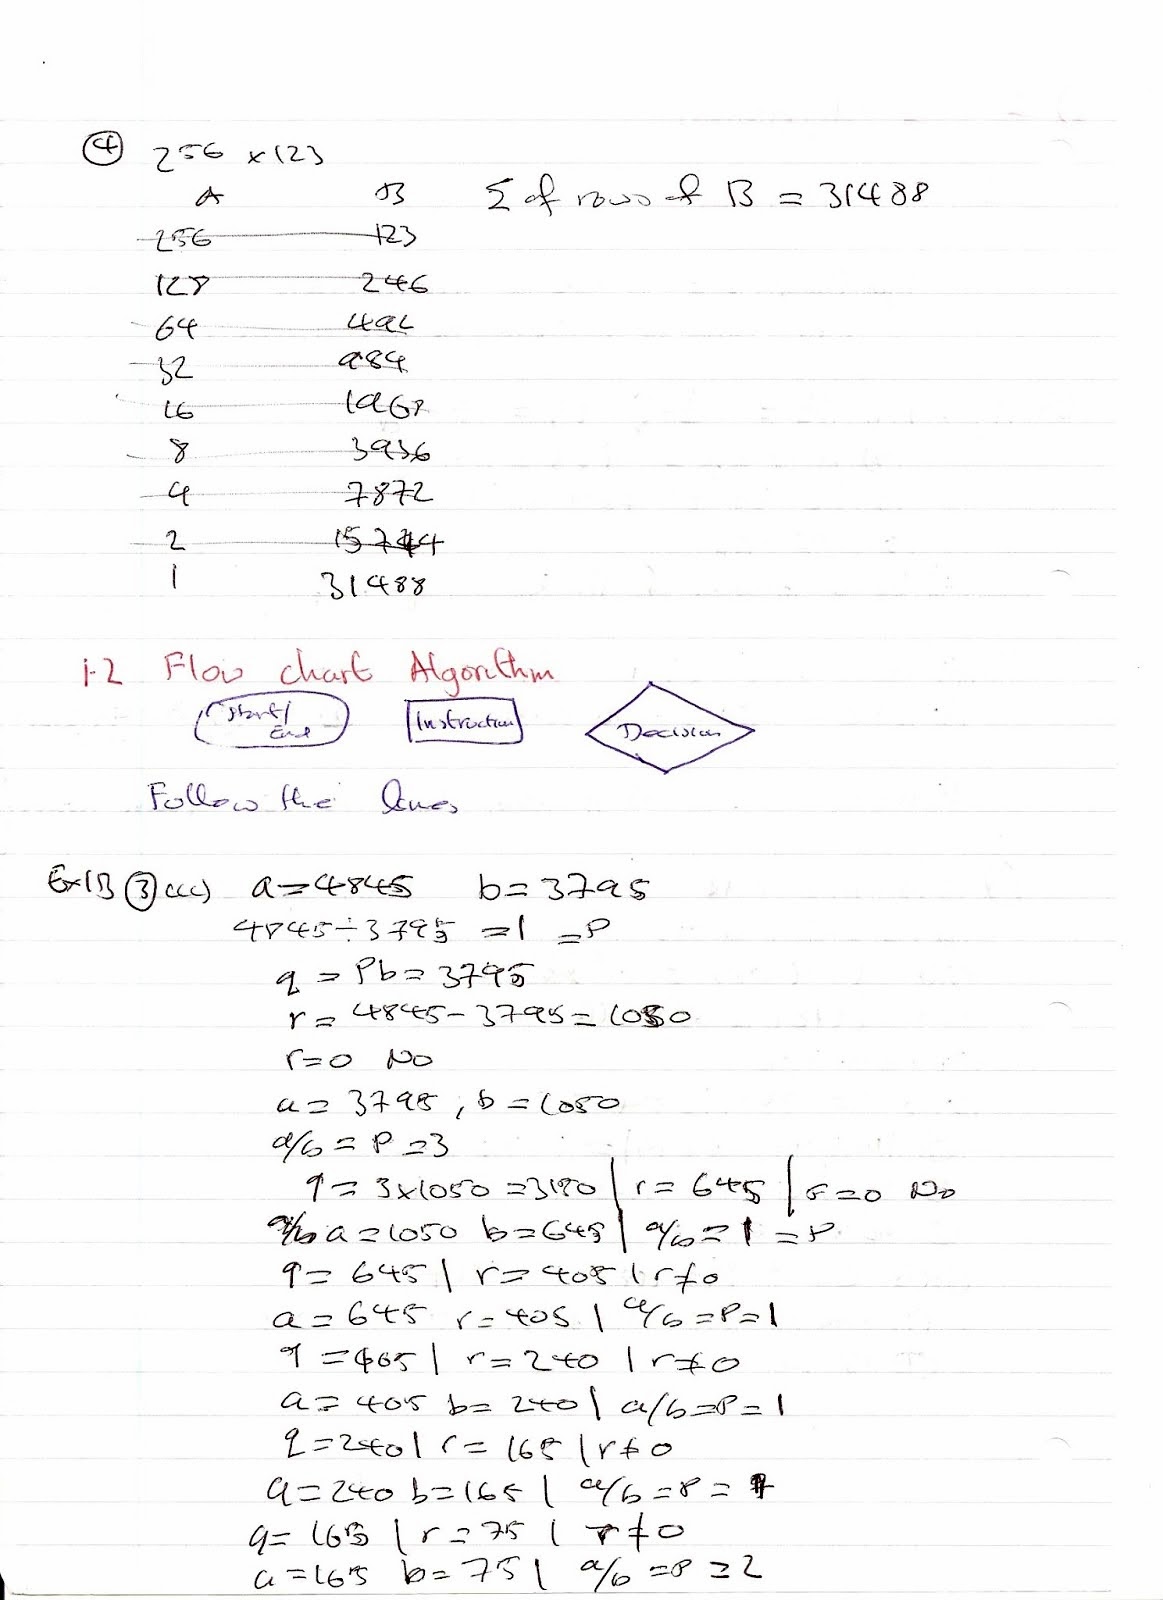 ④ 256 × 123
A B Σ of rows of B = 31488
256 123
128 246
64 492
32 984
16 1968
8 3936
4 7872
2 15744
1 31488
1.2 Flow chart Algorithm
Start/ End Instruction Decision
Follow the lines
Ex1B ③ a=4845 b=3795
4845÷3795 =1 =P
q = Pb = 3795
r = 4845-3795=1050
r=0 No
a = 3795, b=1050
a/b = P =3
q = 3×1050 =3150 | r = 645 | r=0 No
a=1050 b=645 | a/b = 1 = P
q = 645 | r = 405 | r≠0
a = 645 r=405 | a/b =P=1
q =405 | r=240 | r≠0
a = 405 b= 240 | a/b=P=1
q =240 | r = 165 | r≠0
a=240 b=165 | a/b =P = 1
q= 165 | r = 75 | r≠0
a=165 b=75 | a/b =P =2